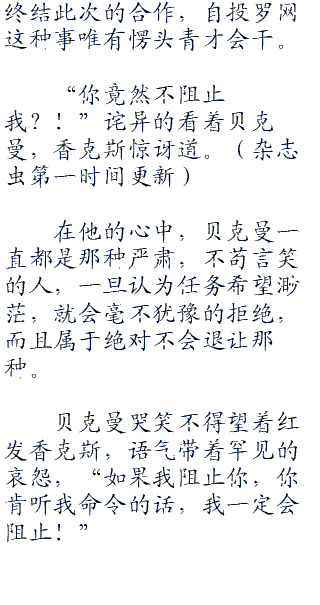 终结此次的合作，自投罗网
这种事唯有愣头青才会干。
“你竟然不阻止
我？！”诧异的看着贝克
曼，香克斯惊讶道。（杂志
虫第一时间更新）
在他的心中，贝克曼一
直都是那种严肃，不苟言笑
的人，一旦认为任务希望渺
茫，就会毫不犹豫的拒绝，
而且属于绝对不会退让那
种。
贝克曼哭笑不得望着红
发香克斯，语气带着罕见的
哀怨，“如果我阻止你，你
肯听我命令的话，我一定会
阻止！”